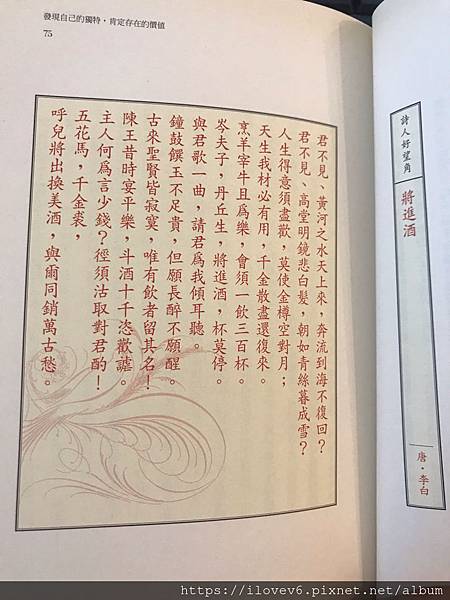 發現自己的獨特，肯定存在的價值
75
詩人好望角
將進酒
唐・李白
君不見、黃河之水天上來，奔流到海不復回？
君不見、高堂明鏡悲白髮，朝如青絲暮成雪？
人生得意須盡歡，莫使金樽空對月；
天生我材必有用，千金散盡還復來。
烹羊宰牛且為樂，會須一飲三百杯。
岑夫子，丹丘生，將進酒，杯莫停。
與君歌一曲，請君為我傾耳聽。
鐘鼓饌玉不足貴，但願長醉不願醒。
古來聖賢皆寂寞，唯有飲者留其名！
陳王昔時宴平樂，斗酒十千恣歡謔。
主人何為言少錢？徑須沽取對君酌！
五花馬，千金裘，
呼兒將出換美酒，與爾同銷萬古愁。
https://ilovev6.pixnet.net/album